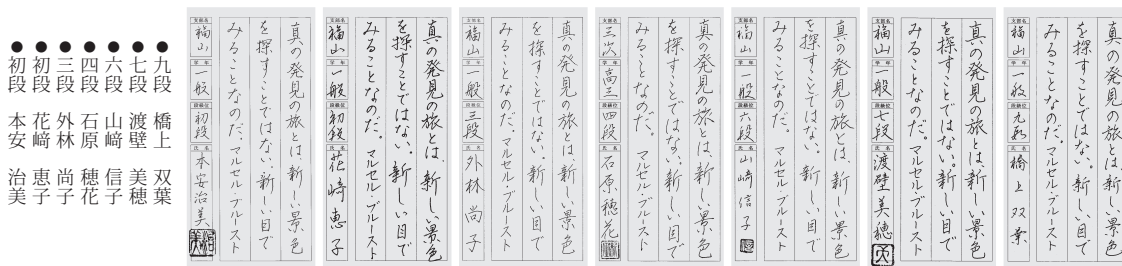 真の発見の旅とは、新しい景色
を探すことではない、新しい目で
みることなのだ。マルセル・プルースト
支部名 福山 学年 一般 段級位 九段 氏名 橋上双葉
真の発見の旅とは、新しい景色
を探すことではない。新しい目で
みることなのだ。マルセル・プルースト
支部名 福山 学年 一般 段級位 七段 氏名 渡壁美穂
真の発見の旅とは、新しい景色
を探すことではない、新しい目で
みることなのだ。マルセル・プルースト
支部名 福山 学年 一般 段級位 六段 氏名 山崎信子
真の発見の旅とは、新しい景色
を探すことではない、新しい目で
みることなのだ、マルセル・プルースト
支部名 三次 学年 高三 段級位 四段 氏名 石原穂花
真の発見の旅とは、新しい景色
を探すことではない、新しい目で
みることなのだ、マルセル・プルースト
支部名 福山 学年 一般 段級位 三段 氏名 外林尚子
真の発見の旅とは、新しい景色
を探すことではない、新しい目で
みることなのだ。マルセル・プルースト
支部名 福山 学年 一般 段級位 初段 氏名 花崎恵子
真の発見の旅とは、新しい景色
を探すことではない、新しい目で
みることなのだ、マルセル・プルースト
支部名 福山 学年 一般 段級位 初段 氏名 本安治美
●九段 橋上 双葉
●七段 渡壁 美穂
●六段 山﨑 信子
●四段 石原 穂花
●三段 外林 尚子
●初段 花﨑 恵子
●初段 本安 治美